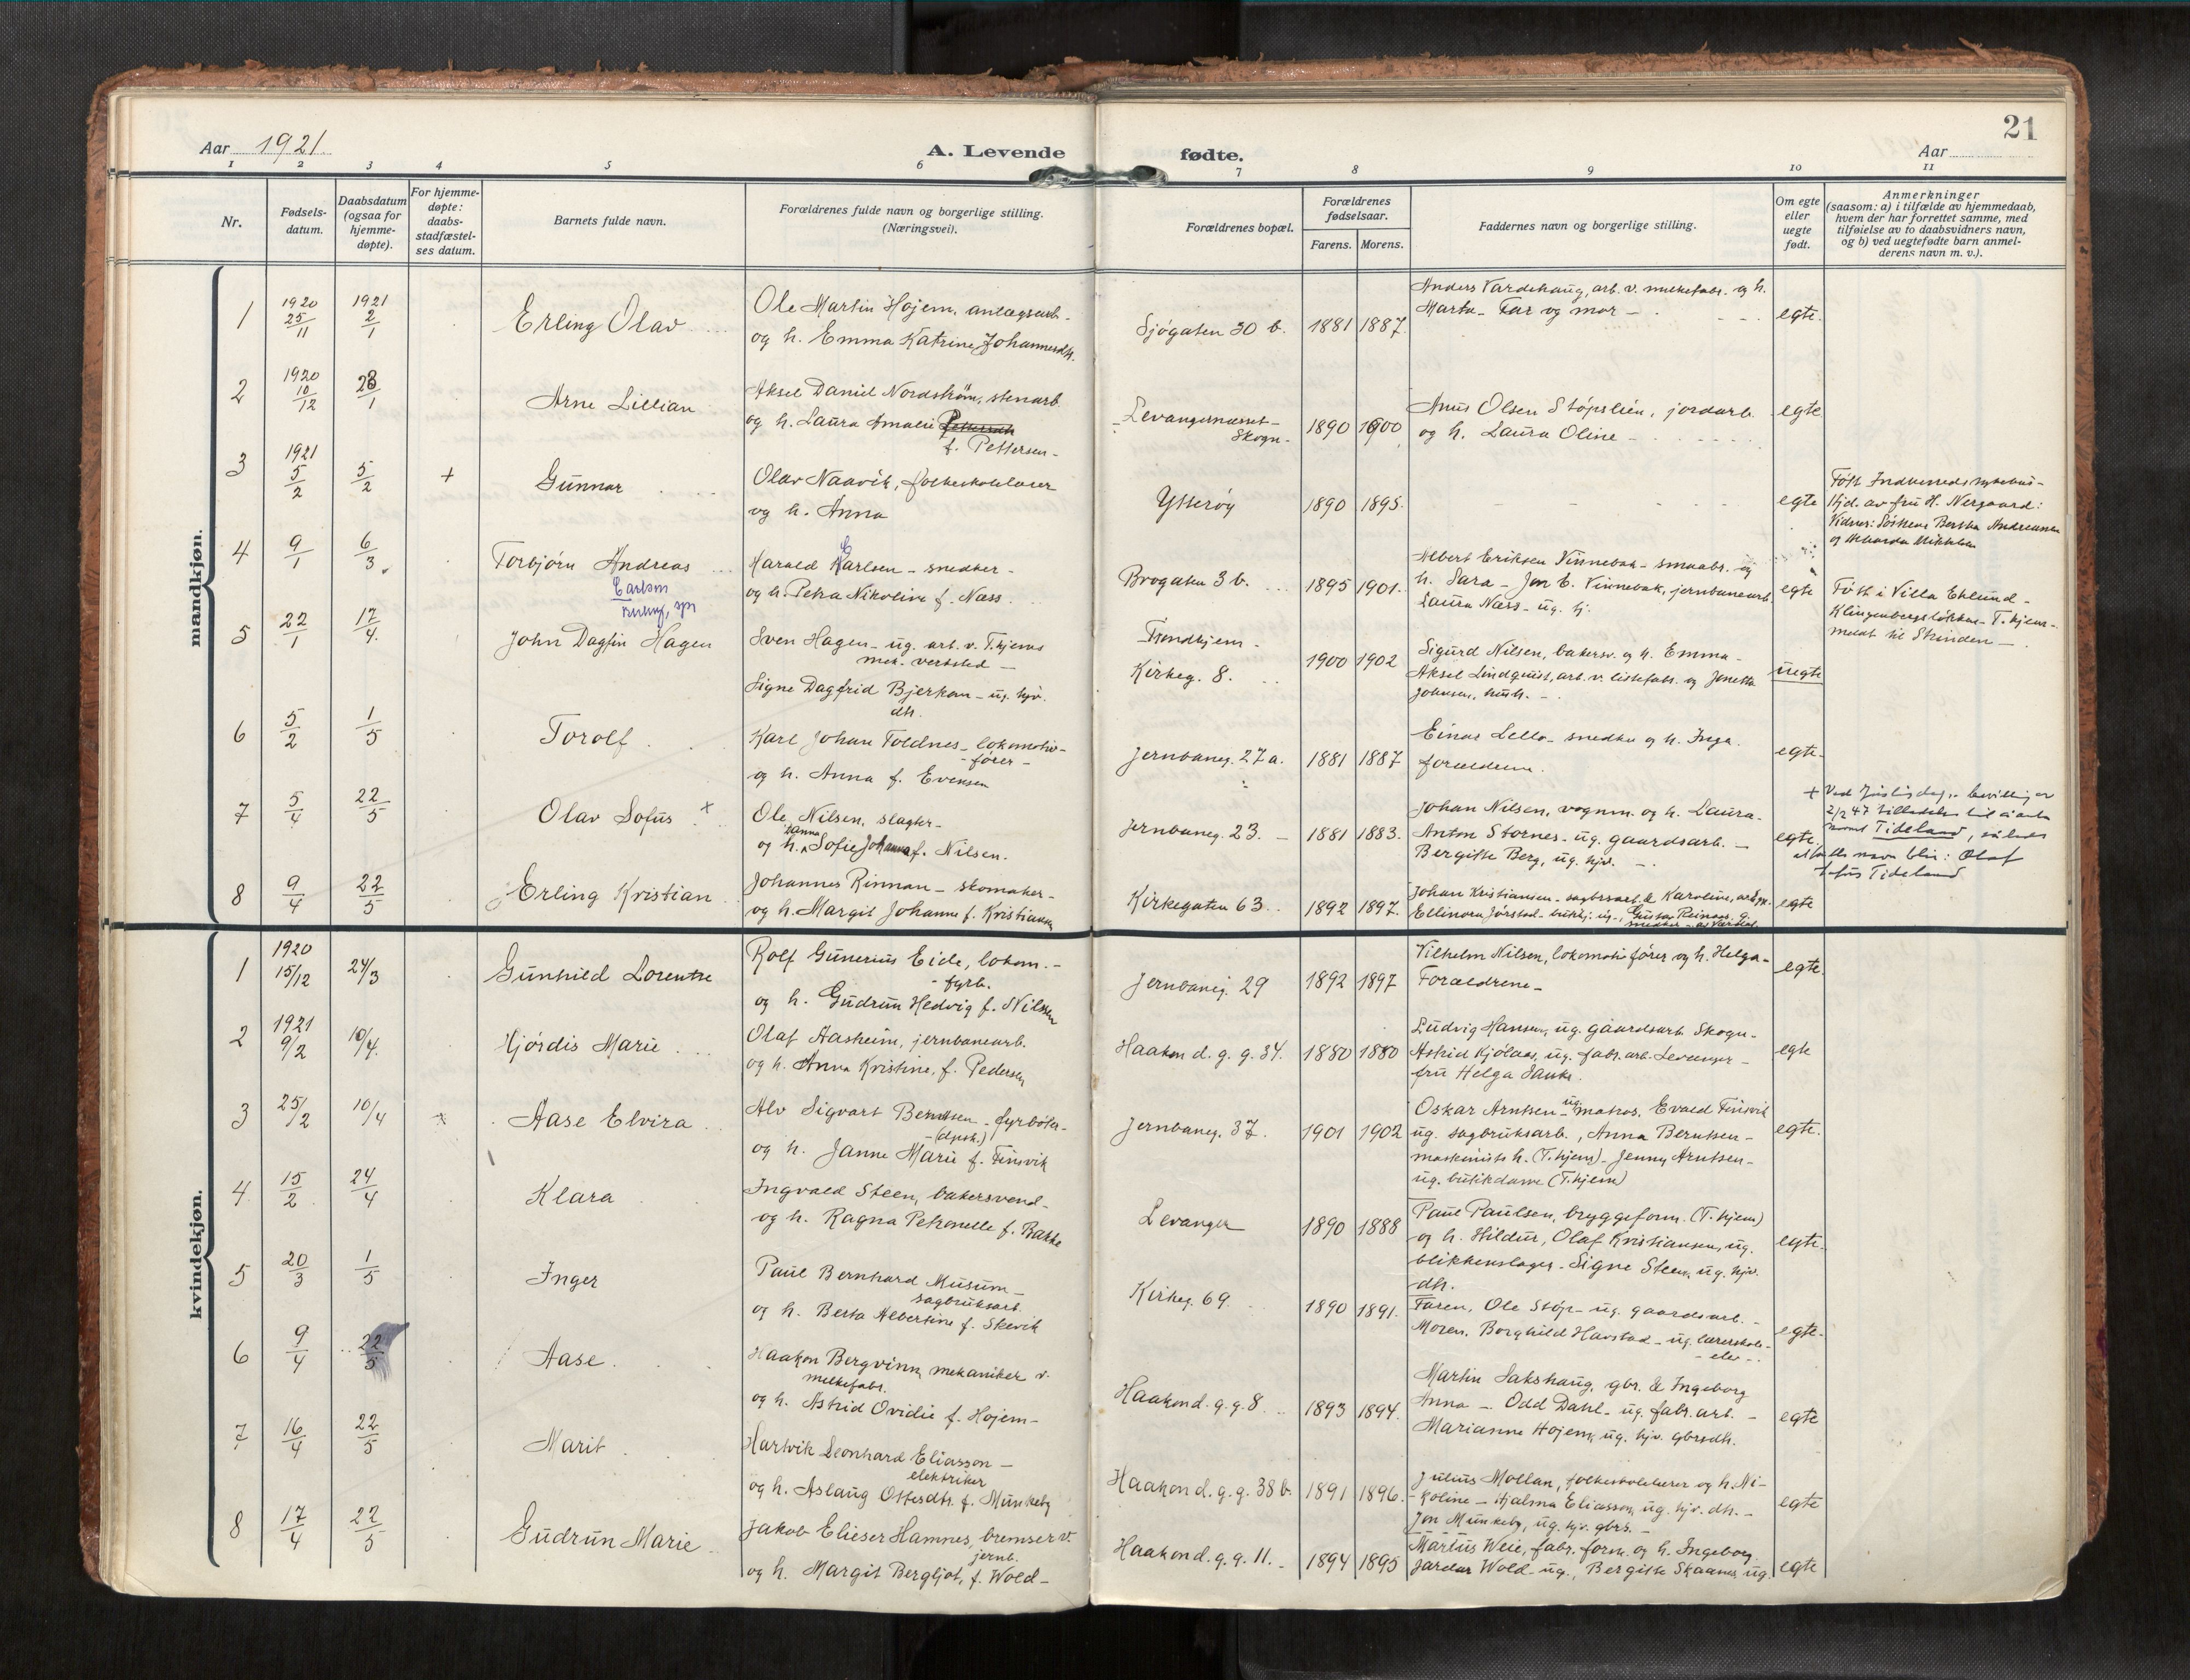 21
Aar 1921.
A. Levende fødte.
Aar
1 2 3 4 5 6 7 8 9 10 11
Nr.
Fødsels-
datum.
Daabsdatum
(ogsaa for
hjemme-
døpte).
For hjemme-
døpte:
daabs-
stadfæstel-
ses datum.
Barnets fulde navn.
Forældrenes fulde navn og borgerlige stilling.
(Næringsvei).
Forældrenes bopæl.
Forældrenes
fødselsaar.
Farens. Morens.
Faddernes navn og borgerlige stilling.
Om egte
eller
uegte
født.
Anmerkninger
(saasom: a) i tilfælde av hjemmedaab,
hvem der har forrettet samme, med
tilføielse av to daabsvidners navn,
og b) ved uegtefødte barn anmel-
derens navn m. v.).
mandkjøn.
1
1920 25/11
1921 2/1
Erling Olav
Ole Martin Hojem, anlægsarb.
og h. Emma Katrine Johannesdt.
Sjøgaten 30 b.
1881 1887.
Anders Vardehaug, arb. v. melkefabr. og h.
Marta - Far og mor -
egte.
2
1920 10/12
23/1
Arne Lillian
Aksel Daniel Nordstrøm, stenarb.
og h. Laura Amalie
f. Pettersen -
Levangernesset -
Skogn -
1890 1900
Anus Olsen Støpslien, jordarb.
og h. Laura Oline -
egte
3
1921 5/2
5/2
+
Gunnar
Olav Naavik, folkeskolelærer
og h. Anna
Ytterøy
1890 1895.
egte
Født Indherreds sykehus -
Hjd. av fru H. Nergaard:
Vidner: Søstrene Bertha Andreassen
og Mikkelsen
4
9/1
6/3
Torbjørn Andreas
Carlsen
Harald Karlsen - snedker -
C
og h. Petra Nikoline f. Næss
Brogaten 3 b.
1895 1901.
Albert Eriksen Vinnebak - smaabr. og
h. Sara - Jon E. Vinnebak, jernbanearb.
Laura Næss - ug. hj.
egte
Født i Villa Eklund -
Klingenbergsløkken - T.hjem -
meldt til Strinden -
5
22/1
17/4.
John Dagfin Hagen
Sven Hagen - ug. arb. v. T.hjems
mek. verksted -
Signe Dagfrid Bjerkan - ug. hjv.
dtr.
Trondhjem -
Kirkeg. 8.
1900 1902
Sigurd Nilsen, bakersv. og h. Emma -
Aksel Lindquist, arb. v. listefabr. og Janetta
Johnsen, hush. -
uegte
6
5/2
1/5
Torolf
Karl Johan Foldnes - lokomotiv-
- fører -
og h. Anna f. Evensen
Jernbaneg. 27a.
1881 1887
Einar Lello - snedker og h. Inga.
forældrene.
egte.
7
5/4
22/5
Olav Sofus +
Ole Nilsen, slagter -
og h. Hanna Sofie Johanna f. Nilsen.
Jernbaneg. 23. -
1881 1883.
Johan Nilsen, vognm. og h. Laura -
Anton Stornes - ug. gaardsarb. -
Bergitte Berg, ug. hjv. -
egte.
+ Ved Justisdep. bevilling av
2/2 47 tilladelse til å anta
navnet Tideland, således
at fulle navn blir: Olaf
Sofus Tideland
8
9/4
22/5
Erling Kristian
Johannes Rinnan - skomaker -
og h. Margit Johanne f. Kristiansen
Kirkegaten 63.
1892 1897.
Johan Kristiansen - sagbr.arb. & Karoline,
Ellinora Jørstad - butikj. ug., Gustav Reinaas. g.
snedker - av Værdal.
egte
kvindekjøn.
1
1920 15/12
24/3
Gunhild Lorentze
Rolf Gunerius Eide, lokom. -
- fyrb.
og h. Gudrun Hedvig f. Nilssen
Jernbaneg. 29
1892 1897
Vilhelm Nilsen, lokomotivfører og h. Helga -
Forældrene -
egte.
2
1921 9/2
10/4.
Hjørdis Marie
Olaf Aasheim, jernbanearb.
og h. Anna Kristine, f. Pedersen
Haakon d. g. g. 34.
1880 1880
Ludvig Hansen, ug. gaardsarb. Skogn -
Astrid Kjølaas, ug. fabr.arb. Levanger -
fru Helga Janke.
egte
3
25/2
10/4
+
Aase Elvira
Alv Sigvart Berntsen - fyrbøter -
- (dpsk.)
og h. Janne Marie f. Finsvik
Jernbaneg. 37.
1901 1902
Oskar Arntsen - ug. matros, Evald Finsvik
ug. sagbruksarb., Anna Berntsen -
maskinists h. (T.hjem) - Jenny Arntsen -
ug. butikdame (T.hjem)
egte.
4
15/2
24/4
Klara
Ingvald Steen, bakersvend -
og h. Ragna Petronelle f. Bakke
Levanger
1890 1888
Paul Paulsen, bryggeform. (T.hjem)
og h. Hildur, Olaf Kristiansen, ug.
blikkenslager - Signe Steen, ug. hjv.
dtr.
egte.
5
20/3
1/5
Inger
Paul Bernhard Musum -
sagbruksarb.
og h. Berta Albertine f. Skevik
Kirkeg. 69.
1890 1891.
Faren, Ole Støp - ug. gaardsarb. -
Moren. Borghild Havstad - ug. lærerskole-
- elev -.
egte.
6
9/4
22/5
Aase.
Haakon Bergvinn, mekaniker v.
melkefabr.
og h. Astrid Ovidie f. Hojem -
Haakon d. g. g. 8.
1893 1894.
Martin Sakshaug, gbr. & Ingeborg
Anna - Odd Dahl - ug. fabr.arb. -
Marianne Hojem, ug. hjv. gbrsdtr.
egte
7
16/4
22/5
Marit
Hartvik Leonhard Eliasson -
elektriker
og h. Aslaug Ottesdtr. f. Munkeby
Haakon d. g. g. 38 b.
1891 1896.
Julius Mollan, folkeskolelærer og h. Ni-
koline - Hjalma Eliasson, ug. hjv. dtr. -
Jon Munkeby, ug. hjv. gbrs. -
egte
8
17/4
22/5
Gudrun Marie
Jakob Elieser Hamnes, bremser v.
jernb.
og h. Margit Bergljot, f. Wold -
Haakon d. g. g. 11. -
1894 1895
Marius Weie, fabr. form. og h. Ingeborg.
Jardar Wold - ug., Bergitte Skaanes ug.
egte